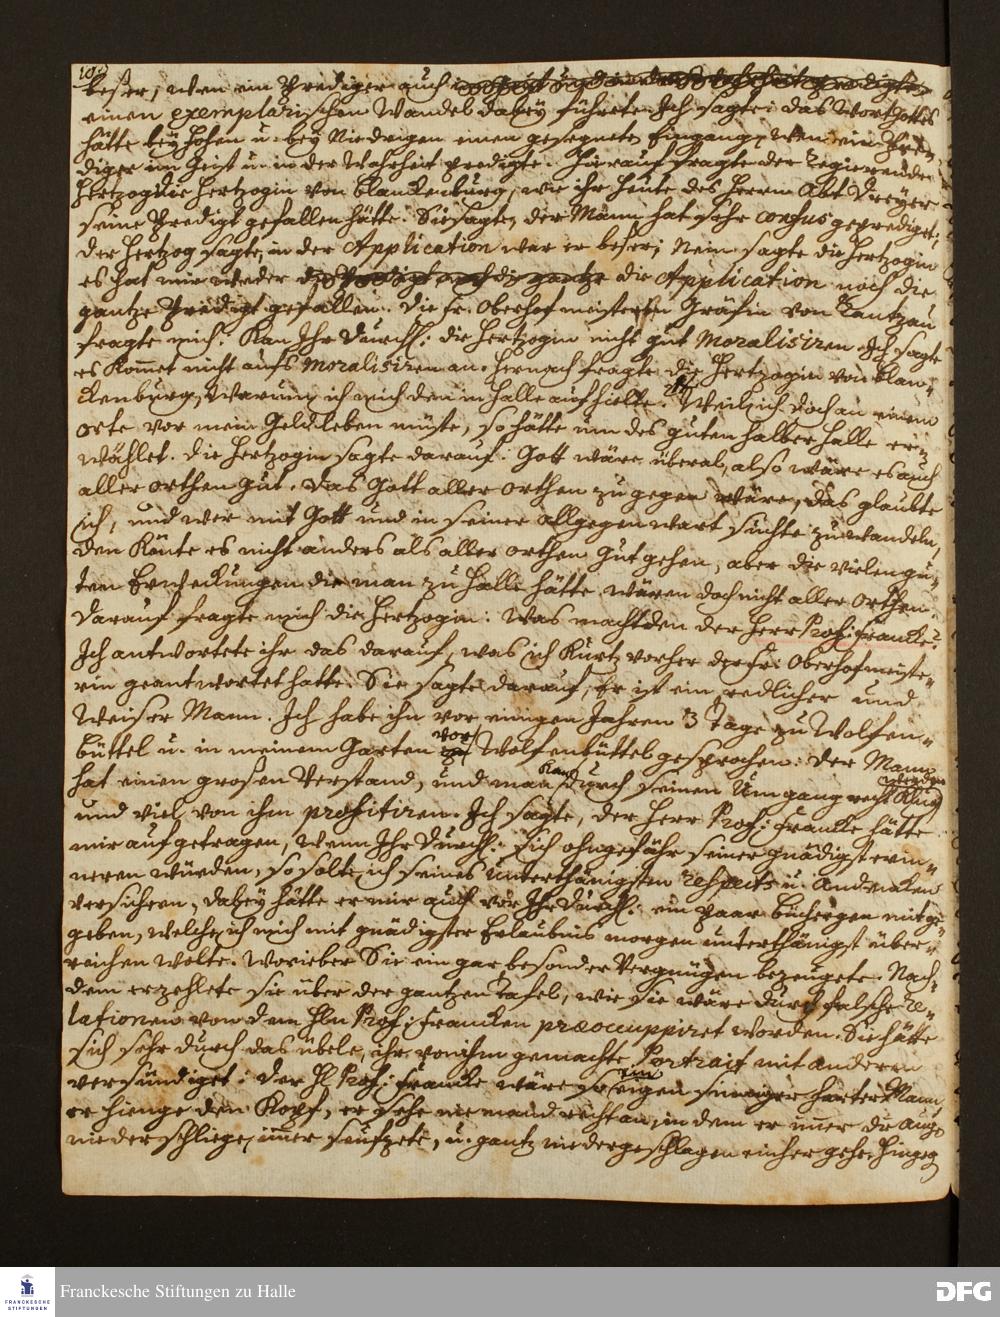 beßer, wen ein Prediger auch
einen exemplarischen Wandel dabey führete. Ich sagte: das Wort Gottes
hätte bey Hohen u. bey Niedrigen einen gesegneten Eingang, wen ein Pre-
diger im Geist u. in der Wahrheit predigte. Hierauf fragte der Regierende
Hertzog die Hertzogin von Blanckenburg, wie ihr heute des Herrn Abt Dreyers
seine Predigt gefallen hätte. Sie sagte, der Mann hat sehr confus geprediget;
der Hertzog sagte, in der Application war er beßer; Nein sagte die Hertzogin
es hat mir weder die Application noch die
gantze Predigt gefallen. Die Fr. Oberhofmeisterin Gräfin von Rantzau
fragte mich: Kan Ihr Durchl: die Hertzogin nicht gut moralisiren. Ich sagte
es kommet nicht aufs moralisiren an. Hernach fragte die Hertzogin von Blan-
ckenburg, Warum ich mich den in Halle aufhielte. Weil ich doch an einem
orte vor mein Geld leben müste, so hätte um des guten halber Halle er-
wöhlet. die Hertzogin sagte darauf: Gott wäre überal, also wäre es auch
aller orthen gut. Das Gott aller orthen zu gegen wäre, das glaubte
ich, und wer mit Gott und in seiner allgegenwart suchte zu wandeln,
den könte es nicht anders als aller orthen gut gehen, aber die vielen gu-
ten Erweckungen die man zu Halle hätte wären doch nicht aller orthen.
Darauf fragte mich die Hertzogin: Was macht den der Herr Prof: Francke?
Ich antwortete ihr das darauf, was ich kurtz vorher der Fr: Oberhofmeiste-
rin geantwortet hatte. Sie sagte darauf, Er ist ein redlicher und
Weiser Mann. Ich habe ihn vor einigen Jahren 3 Tage zu Wolfen-
büttel u. in meinem Garten vor Wolfenbüttel gesprochen: der Mann
hat einen großen Verstand, und man kan durch seinen Umgang recht klug werden
und viel von ihm profitiren. Ich sagte, der Herr Prof: Francke hätte
mir aufgetragen, wenn Ihr Durchl: sich ohngefähr seiner gnädigst erin-
neren würden, so solte ich seines unterthänigsten respects u. Andencken
versichern, dabey hätte er mir auch vor Ihr Durchl: ein paar büchergen mitge-
geben, welche ich mich mit gnädigster Erlaubnis morgen unterthänigst über-
reichen wolte. Worieber Sie ein gar besonder Vergnügen bezeugete. Nach-
dem erzehlete sie über der gantzen Tafel, wie sie wäre durch falsche Re-
lationen von dem Hln Prof: Francken præoccuppiret worden. Sie hätte
sich sehr durch das übele, ihr von ihm gemachte Portrait mit anderen
versündiget: der Hl Prof: Francke wäre so ein eigensinniger harter Mann,
er hienge den Kopf, er sehe niemand recht an, in dem er immer die auge
nieder schliege, immer seufzete, u. gantz niedergeschlagen einher gehe. Hingeg
Franckesche Stiftungen zu Halle
FRANCKESCHE
STIFTUNGEN
DFG